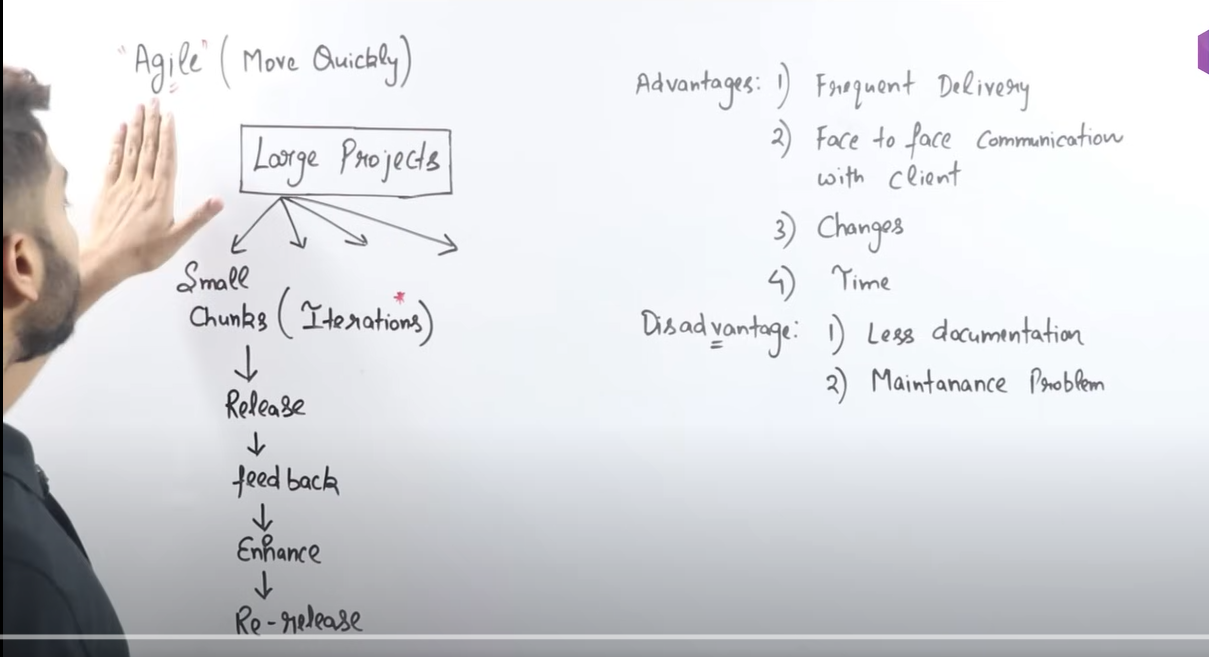 "Agile" (Move Quickly)
Large Projects
Small
Chunks (Iterations)*
Release
feedback
Enhance
Re-release
Advantages: 1) Frequent Delivery
2) Face to face Communication
with client
3) Changes
4) Time
Disadvantage: 1) Less documentation
2) Maintanance Problem